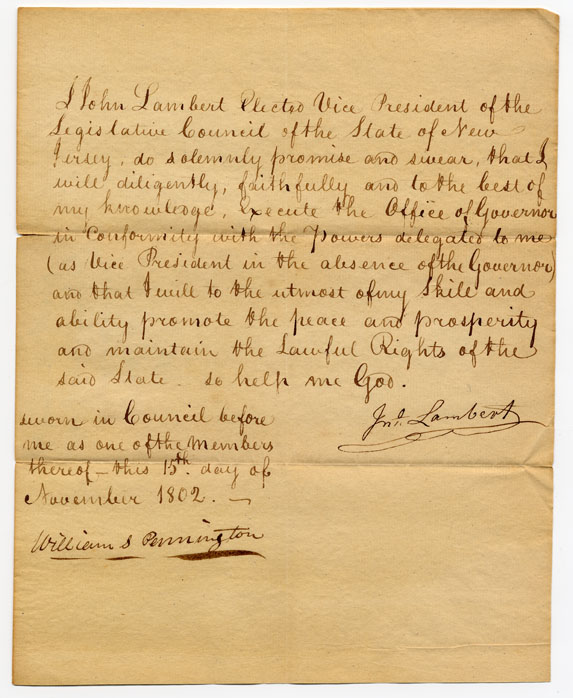 I John Lambert Elected Vice President of the
Legislative Council of the State of New
Jersey, do solemnly promise and swear, that I
will diligently, faithfully and to the best of
my knowledge, Execute the Office of Governor
in Conformity with the Powers delegated to me
(as Vice President in the absence of the Governor)
and that I will to the utmost of my Skill and
ability promote the peace and prosperity
and maintain the Lawful Rights of the
said State - so help me God.
sworn in Council before
me as one of the Members
thereof - this 15th. day of
November 1802. -
Jno. Lambert
William S Pennington